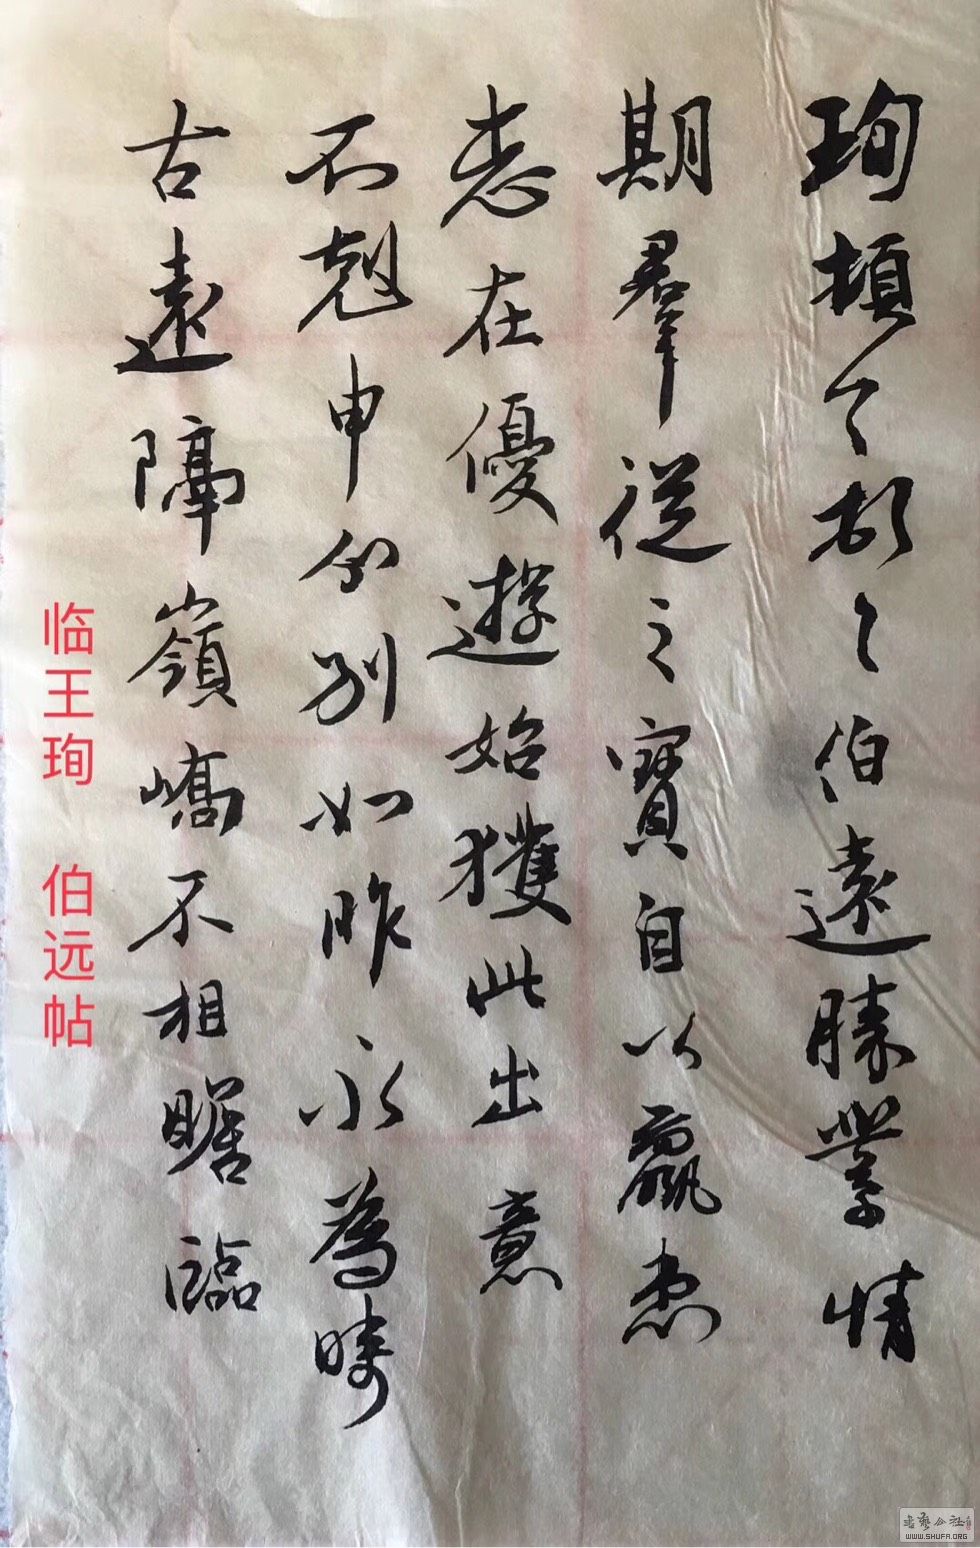 珣頓〻首〻伯遠勝業情
期羣從之寶自以羸患
志在優遊始獲此出意
不剋申分別如昨永為疇
古遠隔嶺嶠不相瞻臨
临王珣 伯远帖
书艺公社
WWW.SHUFA.ORG